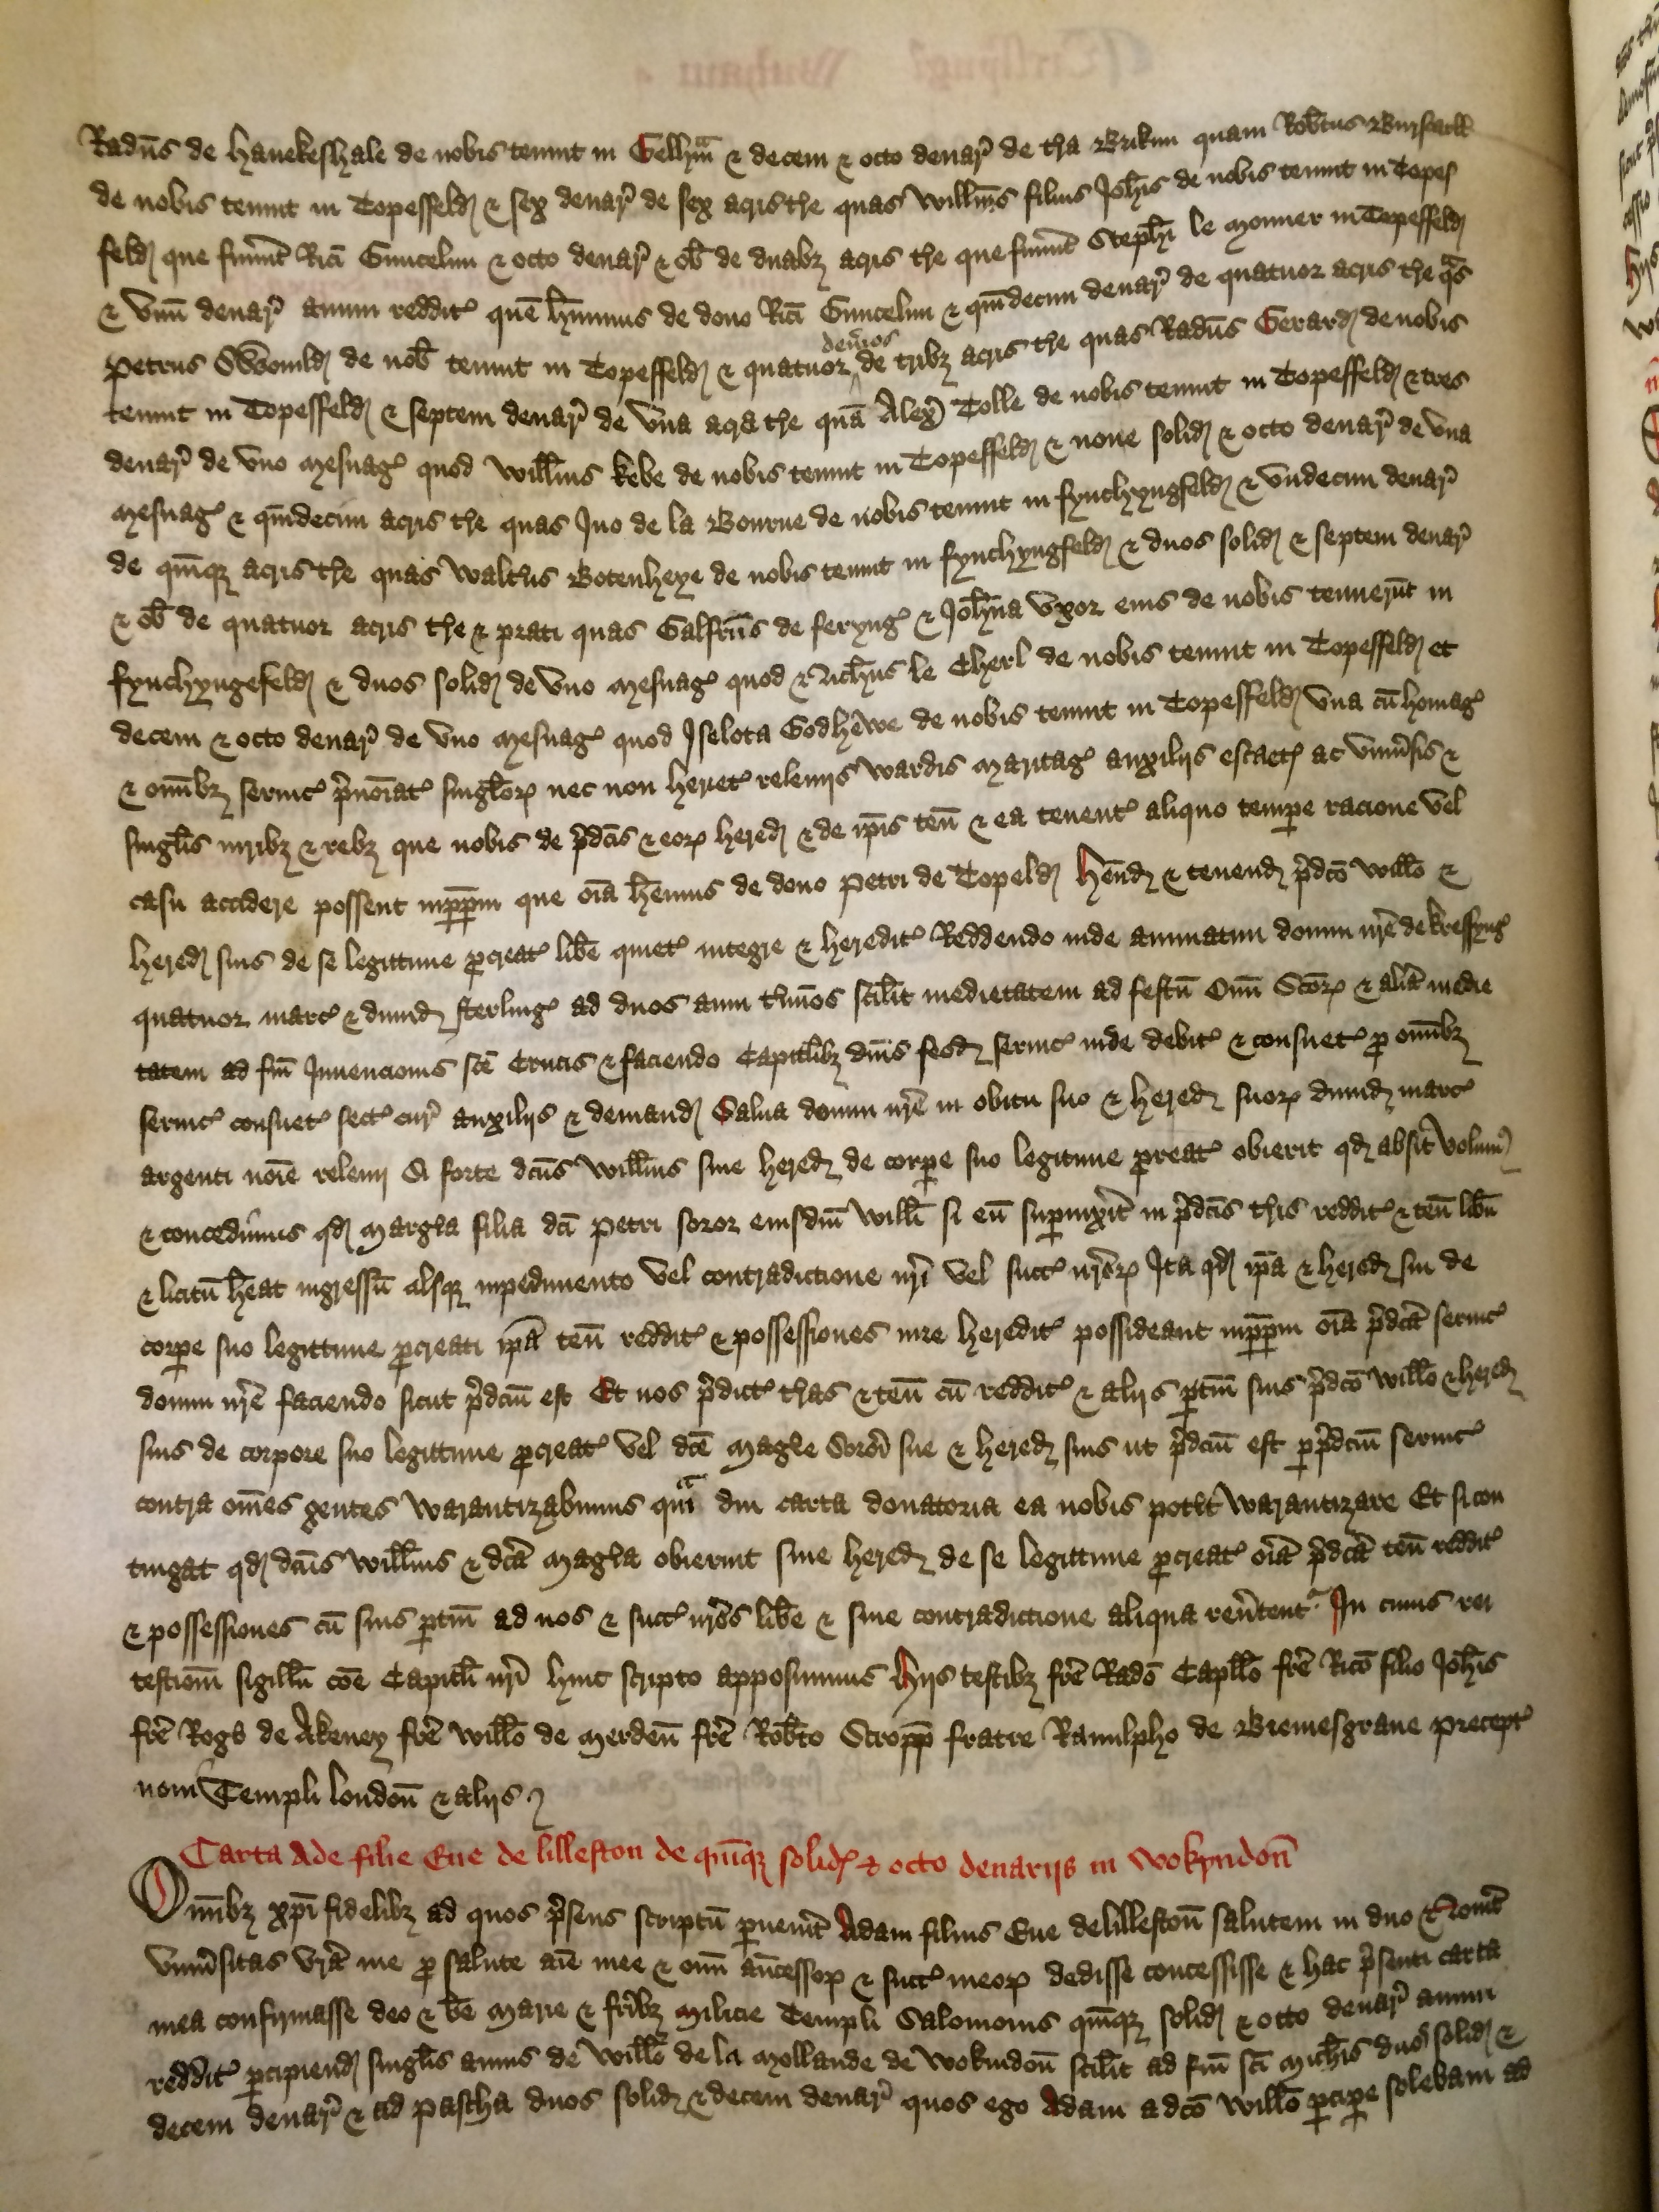 Radūs de hanekeshale de nobis tenuit in Gelhm̄ & decem & octo denar̄ de t̄ra Brikun quam Rob̄tus Bur
de nobis tenuit in Topeffeld & sex denar̄ de sex acris t̄re quas Willm̄s filius Joh̄is de nobis tenuit in Topef
feld que fuer̄nt Ric̄i Guncelin & octo denar̄ & ob̄ de duabȝ acris t̄re que fuer̄nt Steph̄i le Monner in Topeffeld
& vnū denar̄ annui reddit quē h̄uimus de dono Rici Guncelin & quīndecim denar̄ de quatuor acris t̄re q̄s
Petrus de nob̄ tenuit in Topeffeld & quatuor denarios de tribȝ acris t̄re quas Radūs Gerard de nobis
tenuit in Topeffeld & septem denar̄ de vna acra t̄re quā Alex̄ Tolle de nobis tenuit in Topeffeld & tres
denar̄ de vno Mesuag quod Willm̄s kebe de nobis tenuit in Topeffeld & none solid & octo denar̄ de vna
Mesuag & quīndecim acris t̄re quas Iuo de la Bourne de nobis tenuit in ffynchyngfeld & vndecim denar̄
de quīnqȝ acris t̄re quas Walt̄us Botenheye de nobis tenuit in ffynchyngfeld & duos solid & septem denar̄
& ob̄ de quatuor acris t̄re & prati quas Galfr̄us de feryng & Joh̄na vxor eius de nobis tenuer̄nt in
ffynchyngefeld & duos solid de vno Mesuag quod Ric̄us le Cherl de nobis tenuit in Topeffeld et
decem & octo denar̄ de vno Mesuag quod Iselota Godhewe de nobis tenuit in Topeffeld vna cū homag
& om̄ibȝ seruic p̄noīat singlo̅r̄ nec non heriet releuijs Wardis Maritag auxilijs escaet ac vniu̅sis &
singl̄is iuribȝ & rebȝ que nobis de p̄dc̄is & eor̄ hered & de ip̄is ten̄ & ea tenent aliquo temp̄e racione vel
casu accidere possent inp̄p̄m que oīa h̄emus de dono Petri de Topeld h̄end & tenend p̄dc̄o Will̄o &
hered suis de se legittime p̄creat lib̄e quiet integre & heredit Reddendo inde annuatim domui nr̄e de kressyng
quatuor marc & dimid sterling ad duos anni t̄mīos scil̄t medietatem ad festū Om̄i Sc̄or̄ & aliā medie
tatem ad fm̄ Inuencionis sc̄e Crucis & faciendo Capitl̄ibȝ dn̄is feod seruic inde debit & consuet p̄ om̄ibȝ
seruic consuet sect cur̄ auxilijs & demand Salua domui nr̄e in obitu suo & hered suor̄ dimid marc
argenti noīe releuij Si forte dc̄us Willm̄s sine hered de corp̄e suo legittime p̄creat obierit qd absit volum̄
& concedimus qd Marg̅ia filia dc̄i Petri soror eiusdm̄ Will̄i si eū sup̄uixit̄ in p̄dc̄is t̄ris reddit & ten̄ lib̄u
& licitū h̄eat ingressū absqȝ inpedimento vel contradictione nr̄i vel succ nr̄or̄ Ita qd ip̄a & hered sui de
corp̄e suo legittime p̄creati ip̄a ten̄ reddit & possessiones iure heredit possideant inp̄p̄m oīa p̄dc̄a seruic
domui nr̄e faciendo sicut p̄dc̄m est Et nos p̄dict t̄ras & ten̄ cū reddit & alijs p̄tin̄ suis p̄dc̄o Will̄o & hered
suis de corpore suo legittime p̄creat vel dc̄e Marg̅ie Sorōi sue & hered suis ut p̄dc̄m est p̄ p̄dc̄m seruic
contra om̄es gentes Warantizabimus dm̄ carta donatoria ea nobis pot̄it Warantizare Et si con
tingat qd dc̄us Willm̄s & dc̄a Marg̅ia obierint sine hered de se legittime p̄creat oīa p̄dc̄a ten̄ reddit
& possessiones cū suis p̄tin̄ ad nos & succ nr̄os lib̄e & sine contradictione aliqua reu̅tent In cuius rei
testīom̄ sigillū cōe Capitl̄i nr̄i huic scripto apposuimus Hijs testibȝ fr̄e Radō Capll̄o fr̄e Ric̄o filio Joh̄is
fr̄e Rog̅o de Akeney fr̄e Will̄o de Merden̄ fr̄e Rob̄to Scropp̄ fratre Ranulpho de Bremesgraue Precept
noui Templi london̄ & alijs
Carta Ade filie Eue de lilleston de quīnqȝ solid & octo denarijs in Wokyndon̄
Omnībȝ xp̄i fidelibȝ ad quos p̄sens scriptū p̄uenit̄ Adam filius Eue de lilleston̄ salutem in dn̄o Nou̅it
vniu̅sitas vr̄a me p̄ salute aīe mee & om̄i an̄cessor̄ & succ meor̄ dedisse concessisse & hac p̄senti carta
mea confirmasse deo & b̄e Marie & fr̄ibȝ Milicie Templi Salomonis quīnqȝ solid & octo denar̄ annui
reddit p̄cipiend singl̄is annis de Will̄o de la Mollande de Wokindon̄ scil̄t ad fm̄ sc̄i Mich̄is duos solid &
decem denar̄ & ad Pascha duos solid & decem denar̄ quos ego Adam a dc̄o Will̄o p̄cip̄e solebam ad